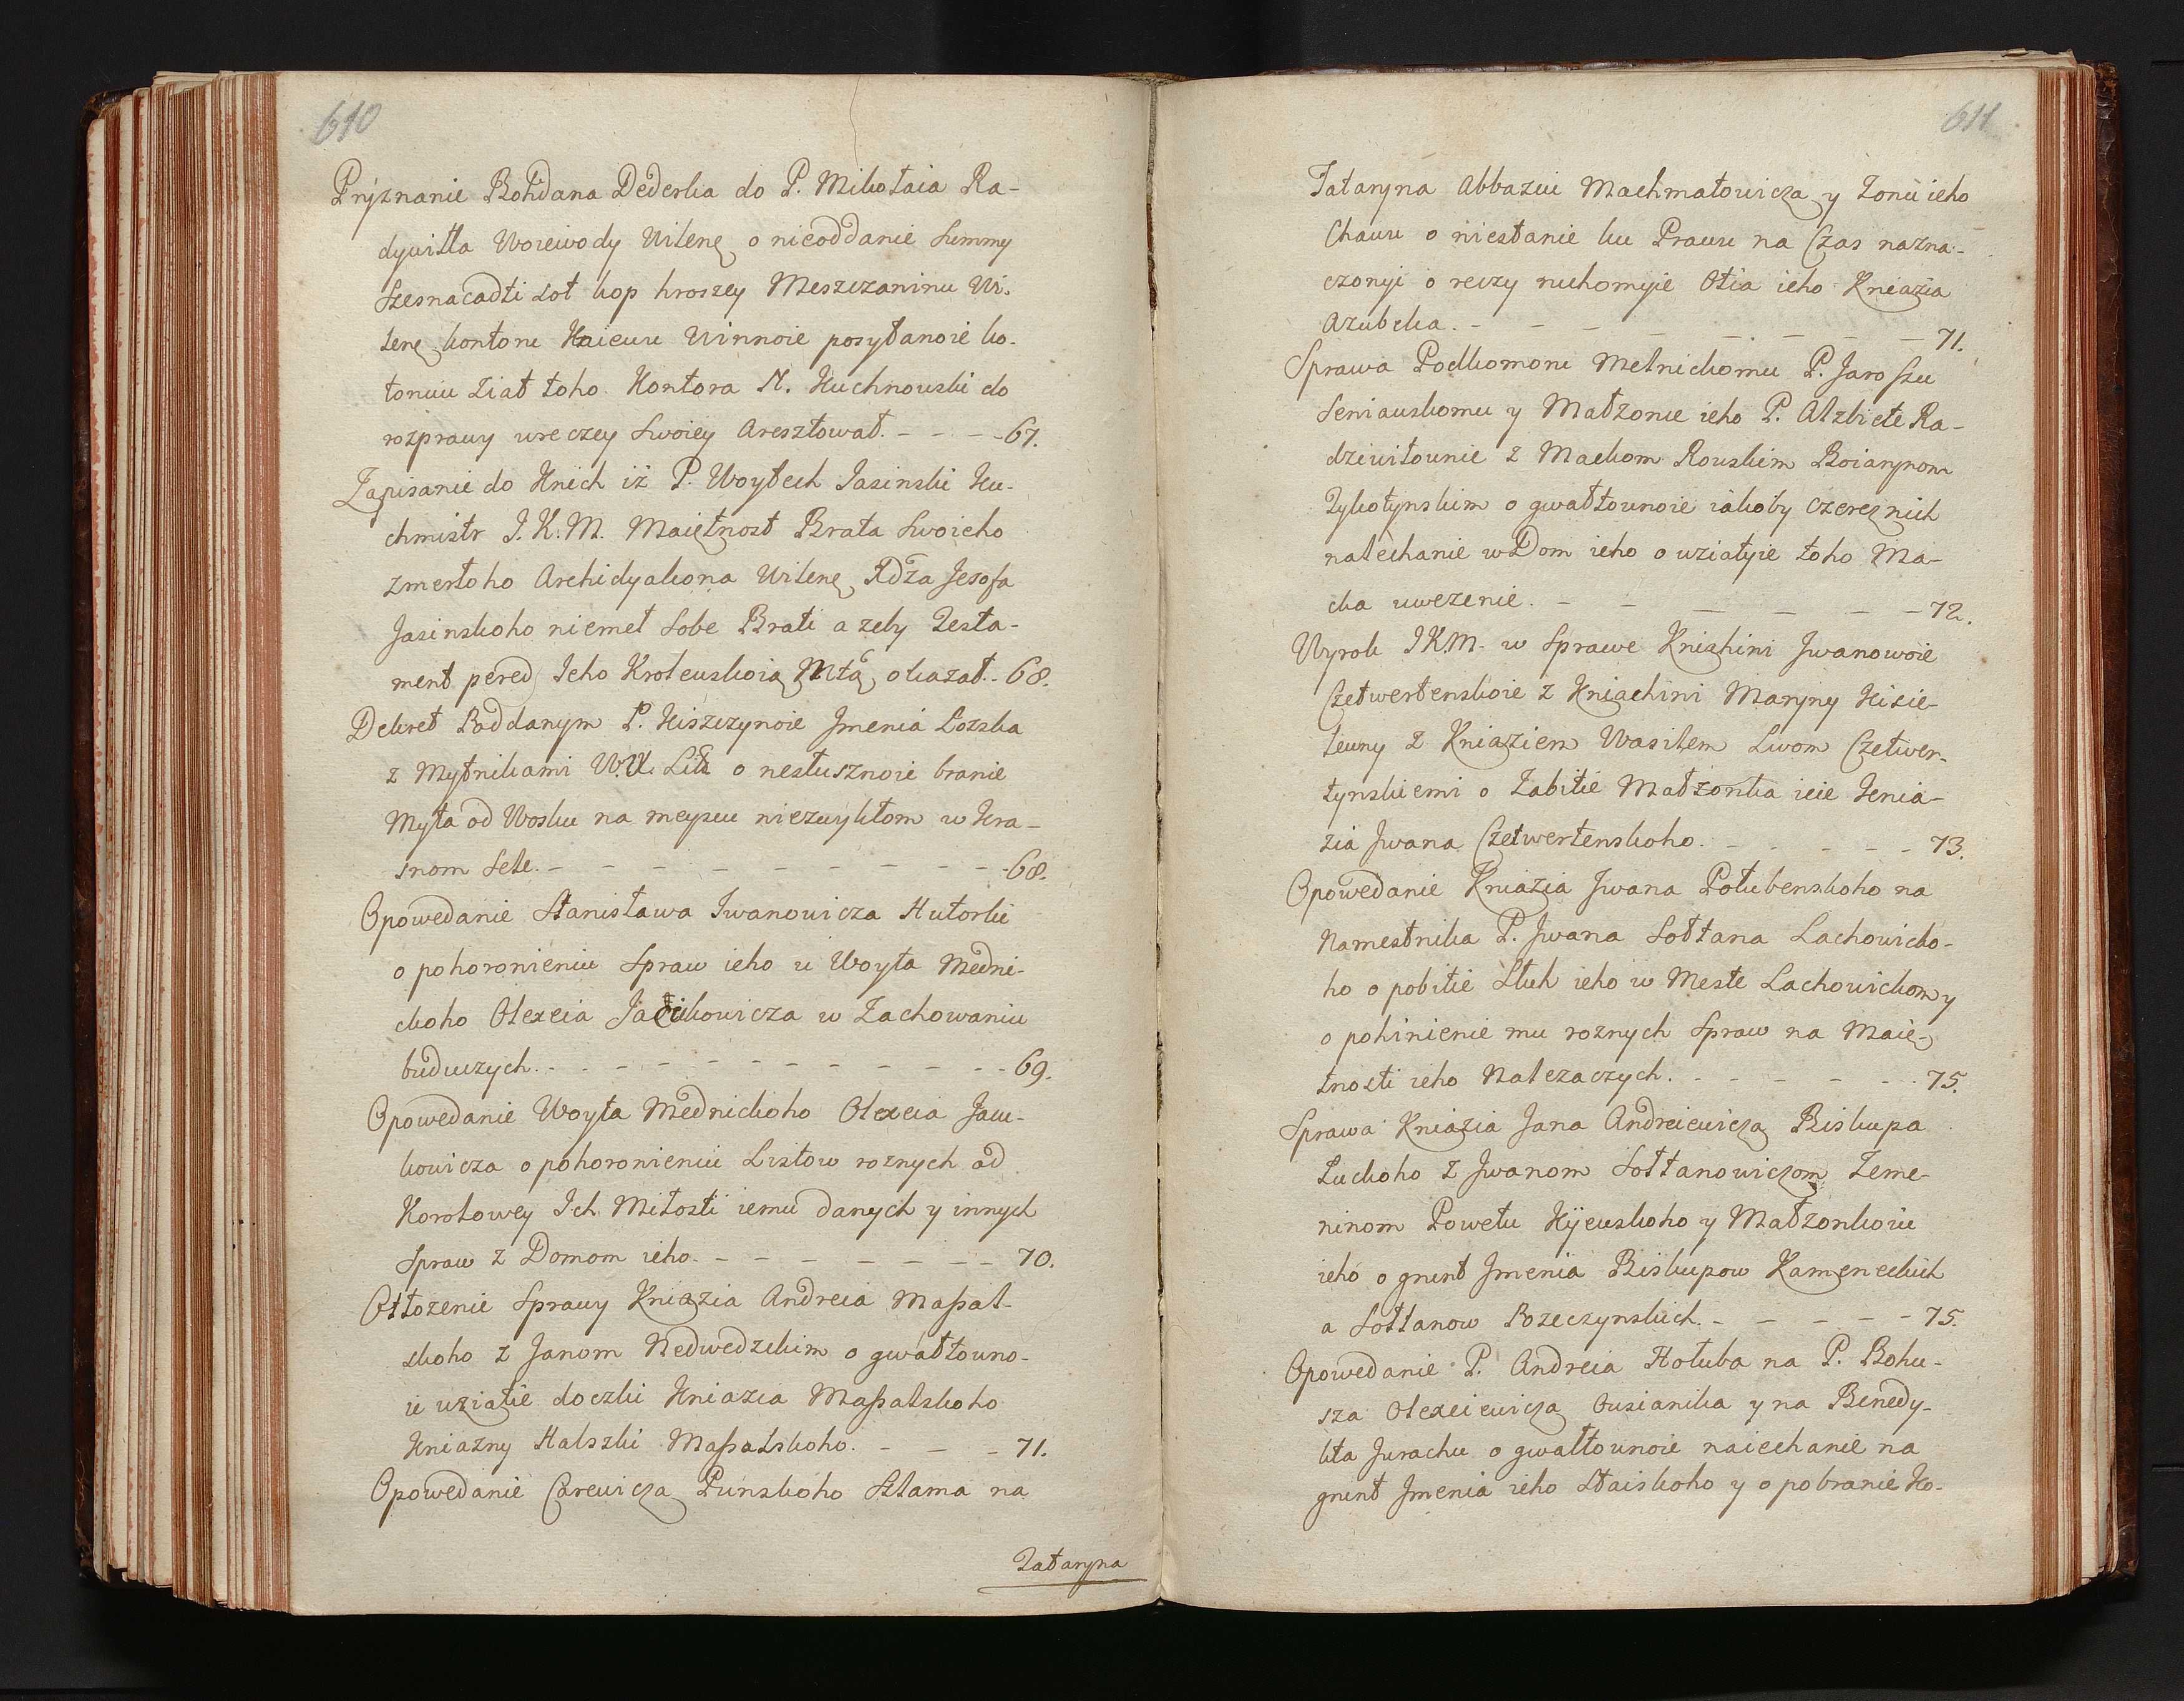 610
Pryznanie Bohdana Dederka do P. Mikołaia Ra-
dywiłła Woiewody Wilenę o nieoddanie Summy
Szesnacadti sot kop hroszey Meszczaninu Wi-
lenę kontoru Winnoie posyłanoie ko-
toruiu Ziat toho Kontora M. Kuchnowski do
rozprawy wreczey Swoiey Aresztował. - - - 67.
Zapisanie do Knich iż P. Woytech Jasinski Ku-
chmistr J. K. M. Maiętnost Brata Swoieho
zmerłoho Archidyakona Wilenę Xdza Jezofa
Jasinskoho niemel Sobe Brati a żeby Testa-
ment pered Jeho Krolewskoią Mtą okazał. - 68.
Dekret Poddanym P. Kiszczynoie Jmenia Łozska
z Mytnikami W. X. Lit o nesłusznoie branie
Myta od Wosku na meyscu niezwykłom w Kra-
snom Sele. - - - - - - - - 68.
Opowedanie Stanisława Iwanowicza Hutorki
o pohoronieniu Spraw ieho u Woyta Medni-
ckoho Olexeia Jackowicza w Zachowaniu
buduczych. - - - - - - - - - 69.
Opowedanie Woyta Mednickoho Olexeia Jacu-
kowicza o pohoronieniu Listow roznych od
Korolowey Ich Miłosti iemu danych y innych
Spraw z Domom ieho. - - - - - - 70.
Otłozenie Sprawy Kniazia Andreia Maßal-
skoho z Janom Nedwedzkim o gwałtowno-
ie uziatie doczki Kniazia Maßalskoho
Kniazny Halszki Maßalskoho. - - - 71.
Opowedanie Carewicza Punskoho Ałama na
Tataryna
611
Tataryna Abbazui Machmatowicza y Zonu ieho
Chawu o niestanie ku Prawu na Czas nazna-
czonyi o reczy ruchomyie Otia ieho Kniazia
Azubeka. - - - - - - - - 71.
Sprawa Podkomoru Melnickomu P. Jaroszu
Seniawskomu y Małzonce ieho P. Alzbiete Ra-
dziwiłownie z Mackom Rouskim Boiarynom
Tykotynskim o gwałtownoie iakoby czerez nich
naiechanie w Dom ieho o uziatyie toho Ma-
cka uwezenie. - - - - - - 72.
Wyrok J K.M. w Sprawe Kniahini Jwanowoie
Czetwertenskoie z Kniachini Maryny Kisie-
lewny z Kniaziem Wasilem Lwom Czetwer-
tynskiemi o Zabitie Małżonka ieie Knia-
zia Jwana Czetwertenskoho. - - - - - 73.
Opowedanie Kniazia Jwana Połubenskoho na
Namestnika P. Jwana Sołtana Lachowicko-
ho o pobitie Sluh ieho w Meste Lachowickom y
o pohinienie mu roznych Spraw na Maię-
tnosti ieho Nalezaczych. - - - - - 75.
Sprawa Kniazia Jana Andreiewicza Biskupa
Łuckoho z Jwanom Sołtanowiczom Zeme-
ninom Powetu Kÿewskoho y Małzonkoiu
ieho o grunt Jmenia Biskupow Kameneckich
a Sołtanow Bozeczynskich. - - - - - 75.
Opowedanie P. Andreia Hołuba na P. Bohu-
sza Olexeiewicza Ousianika y na Benedy-
kta Jurachu o gwałtownoie naiechanie na
grunt Jmenia ieho Staiskoho y o pobranie Ko-